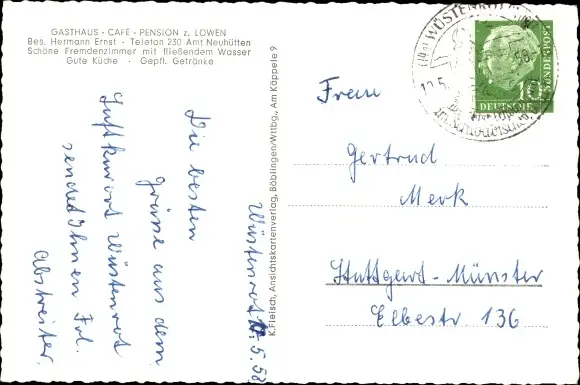 GASTHAUS · CAFÉ · PENSION z. LÖWEN
Bes. Hermann Ernst · Telefon 230 Amt Neuhütten
Schöne Fremdenzimmer mit fließendem Wasser
Gute Küche · Gepfl. Getränke
Die besten
Grüsse aus dem
Luftkurort Wüstenrot
sendet Ihnen Frl.
Abstreiter.
Wüstenrot 5.58
K. Fleisch, Ansichtskartenverlag, Böblingen/Wttbg., Am Käppele 9
WÜSTENROT
DEUTSCHE
BUNDESPOST
10
Frau
Gertrud
Merk
Stuttgart-Münster
Elbestr 136